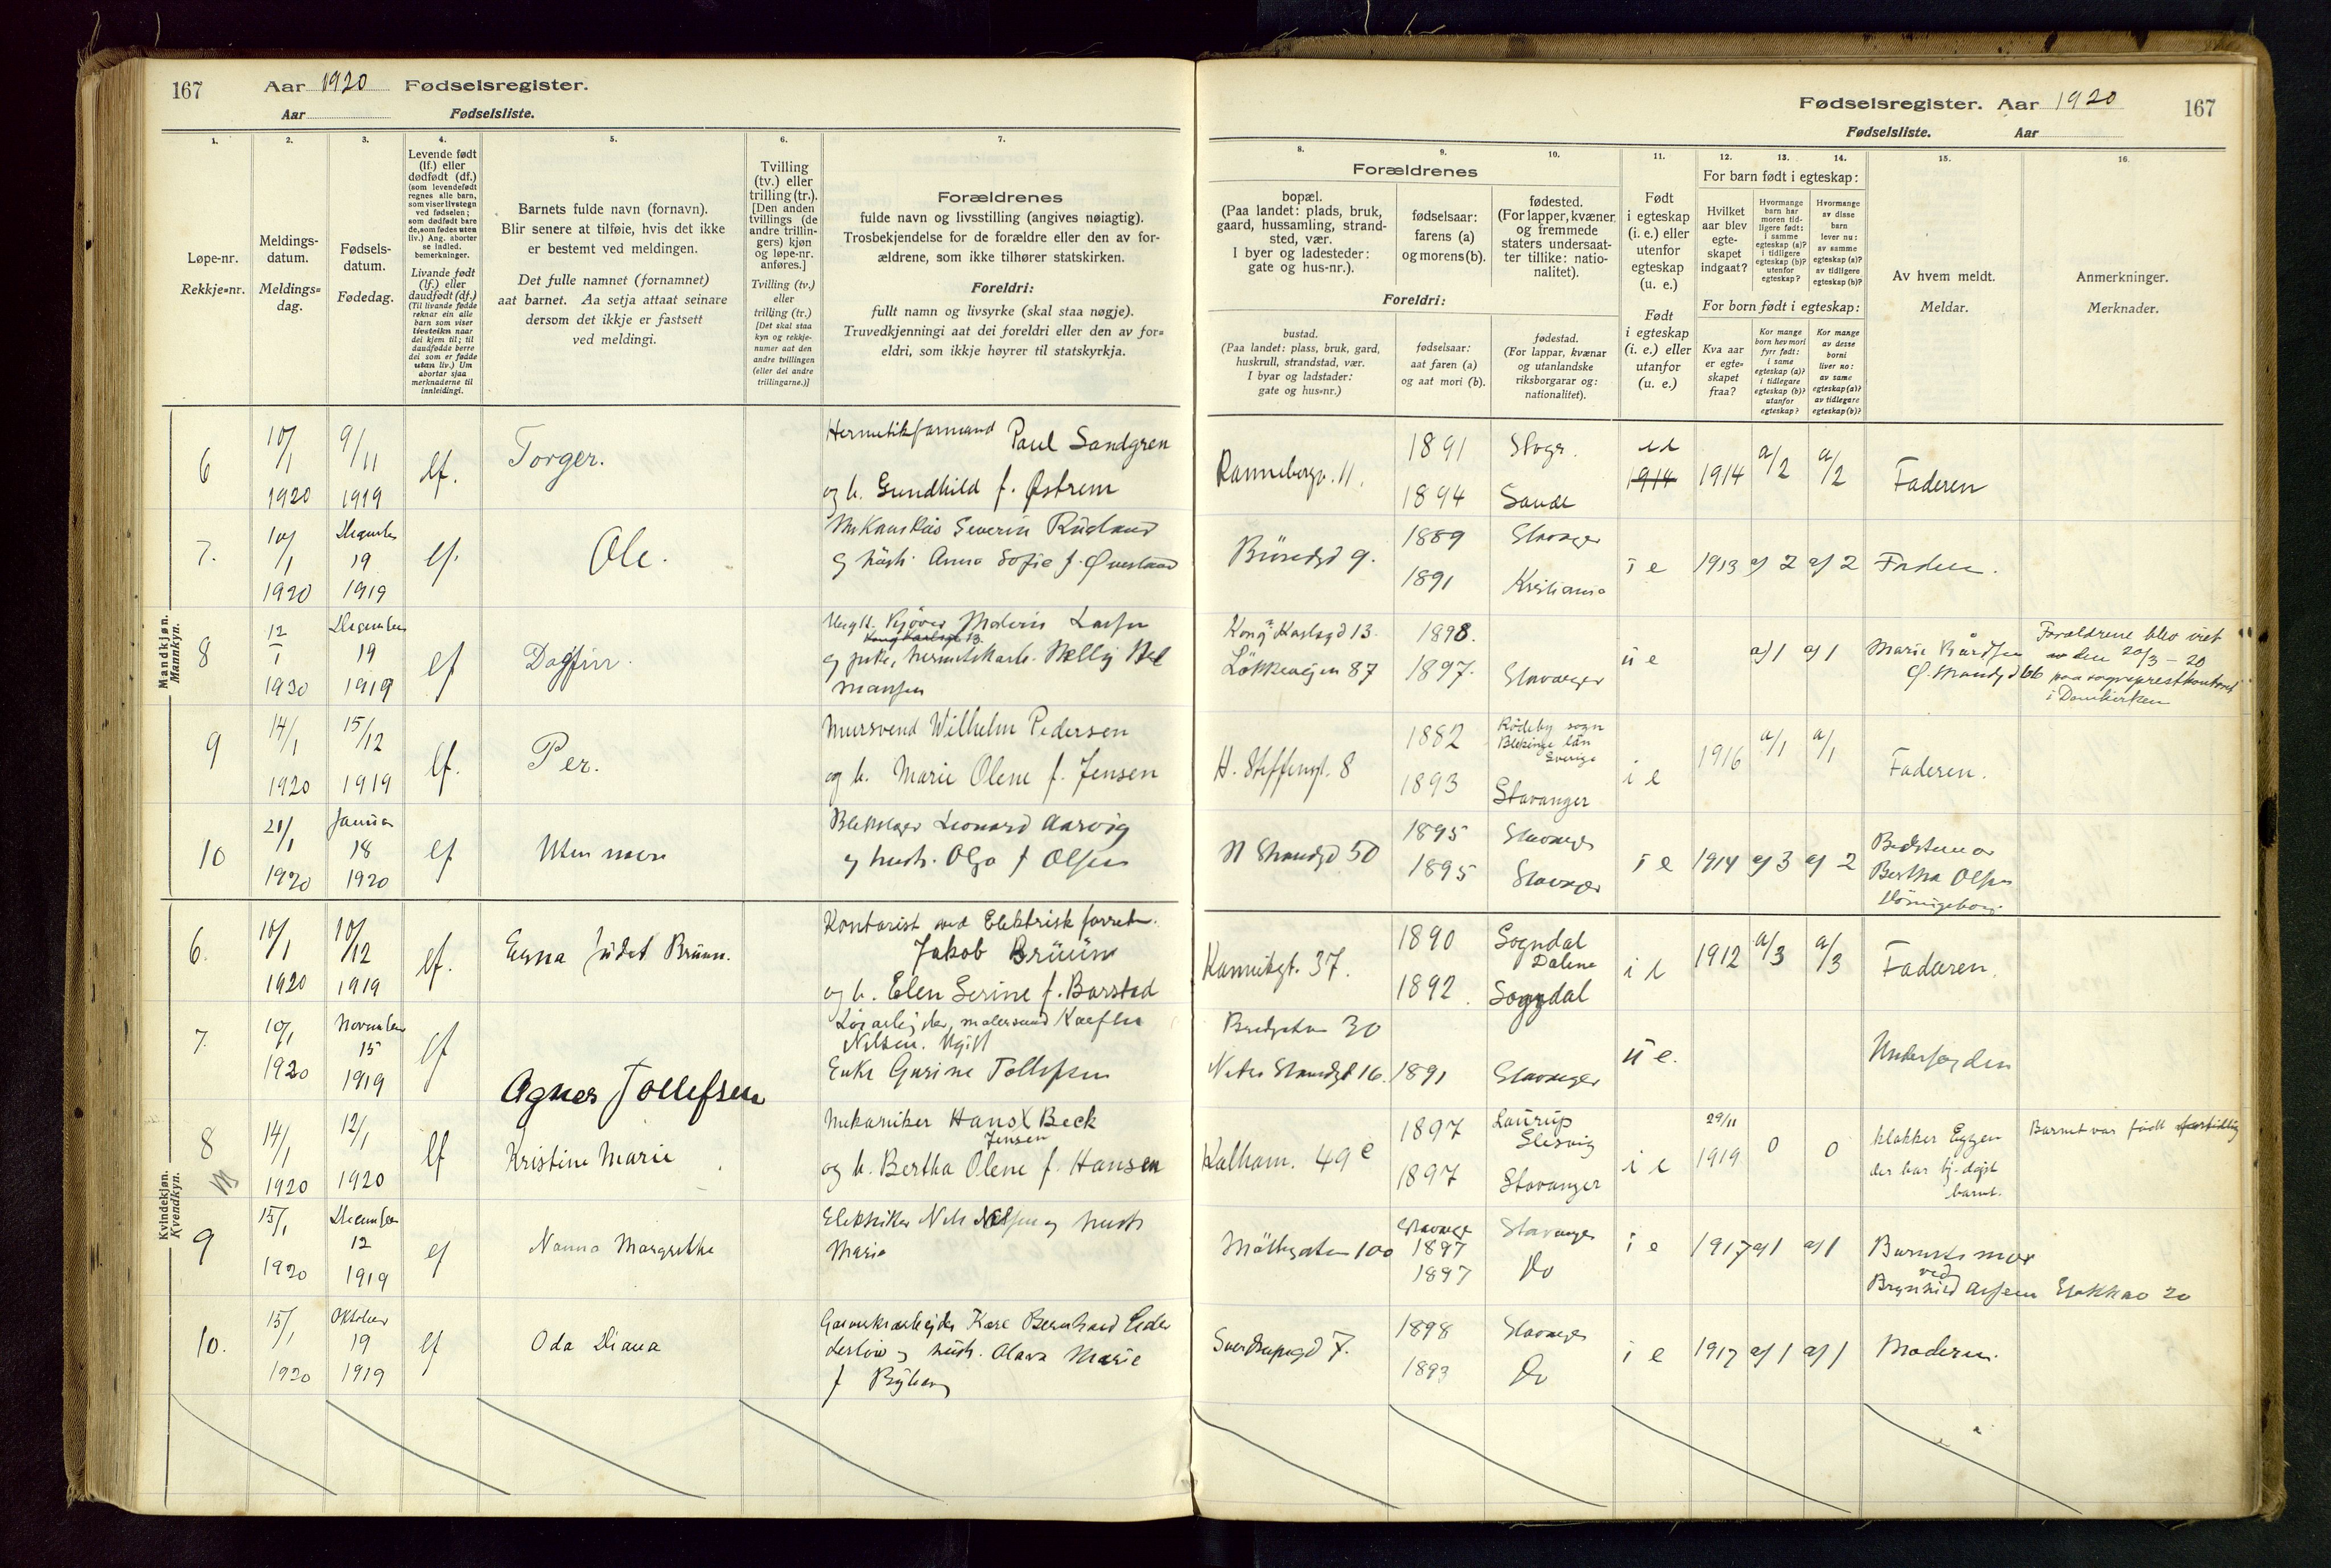 167 Aar 1920 Fødselsregister.
Aar Fødselsliste.
1. 2. 3. 4. 5. 6. 7.
Løpe-nr.
Rekkje-nr.
Meldings-
datum.
Meldings-
dag.
Fødsels-
datum.
Fødedag.
Levende født
(lf.) eller
dødfødt (df.)
(som levendefødt
regnes alle barn,
som viser livstegn
ved fødselen;
som dødfødt bare
de, som fødes uten
liv.) Ang. aborter
se indled.
bemerkninger.
Livande født
(lf.) eller
daudfødt (df.)
(Til livande fødde
reknar ein alle
born som viser
livsteikn naar
dei kjem til; til
daudfødde berre
dei som er fødde
utan liv.) Um
abortar sjaa
merknaderne til
innleidingi.
Barnets fulde navn (fornavn).
Blir senere at tilføie, hvis det ikke
er bestemt ved meldingen.
Det fulle namnet (fornamnet)
aat barnet. Aa setja attaat seinare
dersom det ikkje er fastsett
ved meldingi.
Tvilling
(tv.) eller
trilling (tr.).
[Den anden
tvillings (de
andre trillin-
gers) kjøn
og løpe-nr.
anføres.]
Tvilling (tv.)
eller
trilling (tr.)
[Det skal staa
kyn og rekkje-
numer aat den
andre tvillingen
(eller dei andre
trillingarne.)]
Forældrenes
fulde navn og livsstilling (angives nøiagtig).
Trosbekjendelse for de forældre eller den av for-
ældrene, som ikke tilhører statskirken.
Foreldri:
fullt namn og livsyrke (skal staa nøgje).
Truvedkjenningi aat dei foreldri eller den av for-
eldri, som ikkje høyrer til statskyrkja.
Mandkjøn.
Mannkyn.
6 10/1 1920 9/11 1919 lf. Torger. Hermetikformand Paul Sandgren
og h. Gundhild f. Østrem
7. 10/1 1920 December 19 1919 lf. Ole. Severin Rudland
og hustr. Anna Sofie f.
8 12/1 1920 December 19 1919 lf Dagfin.
9 14/1 1920 15/12 1919 lf. Per. Mursvend Wilhelm Pedersen
og h. Marie Olene f. Jensen
10 21/1 1920 Januar 18 1920 lf Uten navn Leonard Aarvig
og hustr. Olga f Olsen
Kvindekjøn.
Kvendkyn.
6. 10/1 1920 10/12 1919 lf. Judet Brüün. Kontorist ved Elektrisk forretn.
Jakob Brüün
og h. Elen Serine f. Barstad
7. 10/1 1920 November 15 1919 lf Agnes Tollefsen
Nilsen. Ugift
Enke Gurine Tollefsen
8 14/1 1920 12/1 1920 lf Kristine Marie Mekaniker Hans X Beck
Jensen
og h. Bertha Olene f. Hansen
9 15/1 1920 December 12 1919 lf Nanna Margrethe Elektriker Nils Nilsen og hustr
Marie
10. 15/1 1920 Oktober 19 1919 lf Oda Diana Karl Bernhard
og hustr. Olava Marie
f
Fødselsregister. Aar 1920 167
Fødselsliste. Aar
8. 9. 10. 11. 12. 13. 14. 15. 16.
Forældrenes
bopæl.
(Paa landet: plads, bruk,
gaard, hussamling, strand-
sted, vær.
I byer og ladesteder:
gate og hus-nr.).
fødselsaar:
farens (a)
og morens (b).
fødested.
(For lapper, kvæner
og fremmede
staters undersaat-
ter tillike: natio-
nalitet).
Foreldri:
bustad.
(Paa landet: plass, bruk, gard,
huskrull, strandstad, vær.
I byar og ladstader:
gate og hus-nr.)
fødselsaar:
aat faren (a)
og aat mori (b).
fødestad.
(For lappar, kvænar
og utanlandske
riksborgarar og:
nationalitet).
Født
i egteskap
(i. e.) eller
utenfor
egteskap
(u. e.)
Født
i egteskap
(i. e.) eller
utanfor
(u. e.)
For barn født i egteskap:
Hvilket
aar blev
egte-
skapet
indgaat?
Hvormange
barn har
moren tid-
ligere født:
i samme
egteskap (a)?
i tidligere
egteskap (b)?
utenfor
egteskap?
Hvormange
av disse
barn
lever nu:
av samme
egteskap (a)?
av tidligere
egteskap (b)?
For born født i egteskap:
Kva aar
er egte-
skapet
fraa?
Kor mange
born hev mori
fyrr født:
i same
egteskap (a)?
i tidlegare
egteskap (b)?
utanfor
egteskap?
Kor mange
av desse
borni
liver no:
av same
egteskap (a)?
av tidlegare
egteskap (b)?
Av hvem meldt.
Meldar.
Anmerkninger.
Merknader.
Rannebergv. 11. 1891 Stvgr. 1914 1914 a/2 a/2 Faderen
1894 Sande
9. 1889 Stavanger i e 1913 a/2 a/2 Faderen.
1891 Kristiania
Kong Karlsgd 13. 1898. u e a/1 a/1 Forældrene blev viet
Løkkeveien 87 1897. Stavanger den 20/3 - 20
paa sogneprestkontoret
i Domkirken
H. Steffensgt. 8 1882 Rödeby sogn
Blekinge län
Sverige
1893 Stavanger i e 1916 a/1 a/1 Faderen.
N Strandgd 50 1895 Stavanger i e 1914 a/3 a/2 Bedstemor
1895 Stavanger Bertha Olsen
Kannikgt. 37. 1890 Sogndal
Dalene i e 1912 a/3 a/3 Faderen.
1892. Sogndal
30
Nedre Strandgt 16. 1891 Stavanger u e.
Kalham. 49 e 1897 Slesvig i e 29/11 1919 0 0
1897 Stavanger
Barnet var født
100 Stavanger 1897 Stavanger i e 1917 a/1 a/1 Barnets mor
1897 Do ved
Brynhild 20
7. 1898 Stavanger i e 1917 a/1 a/1 Moderen.
1893 Do